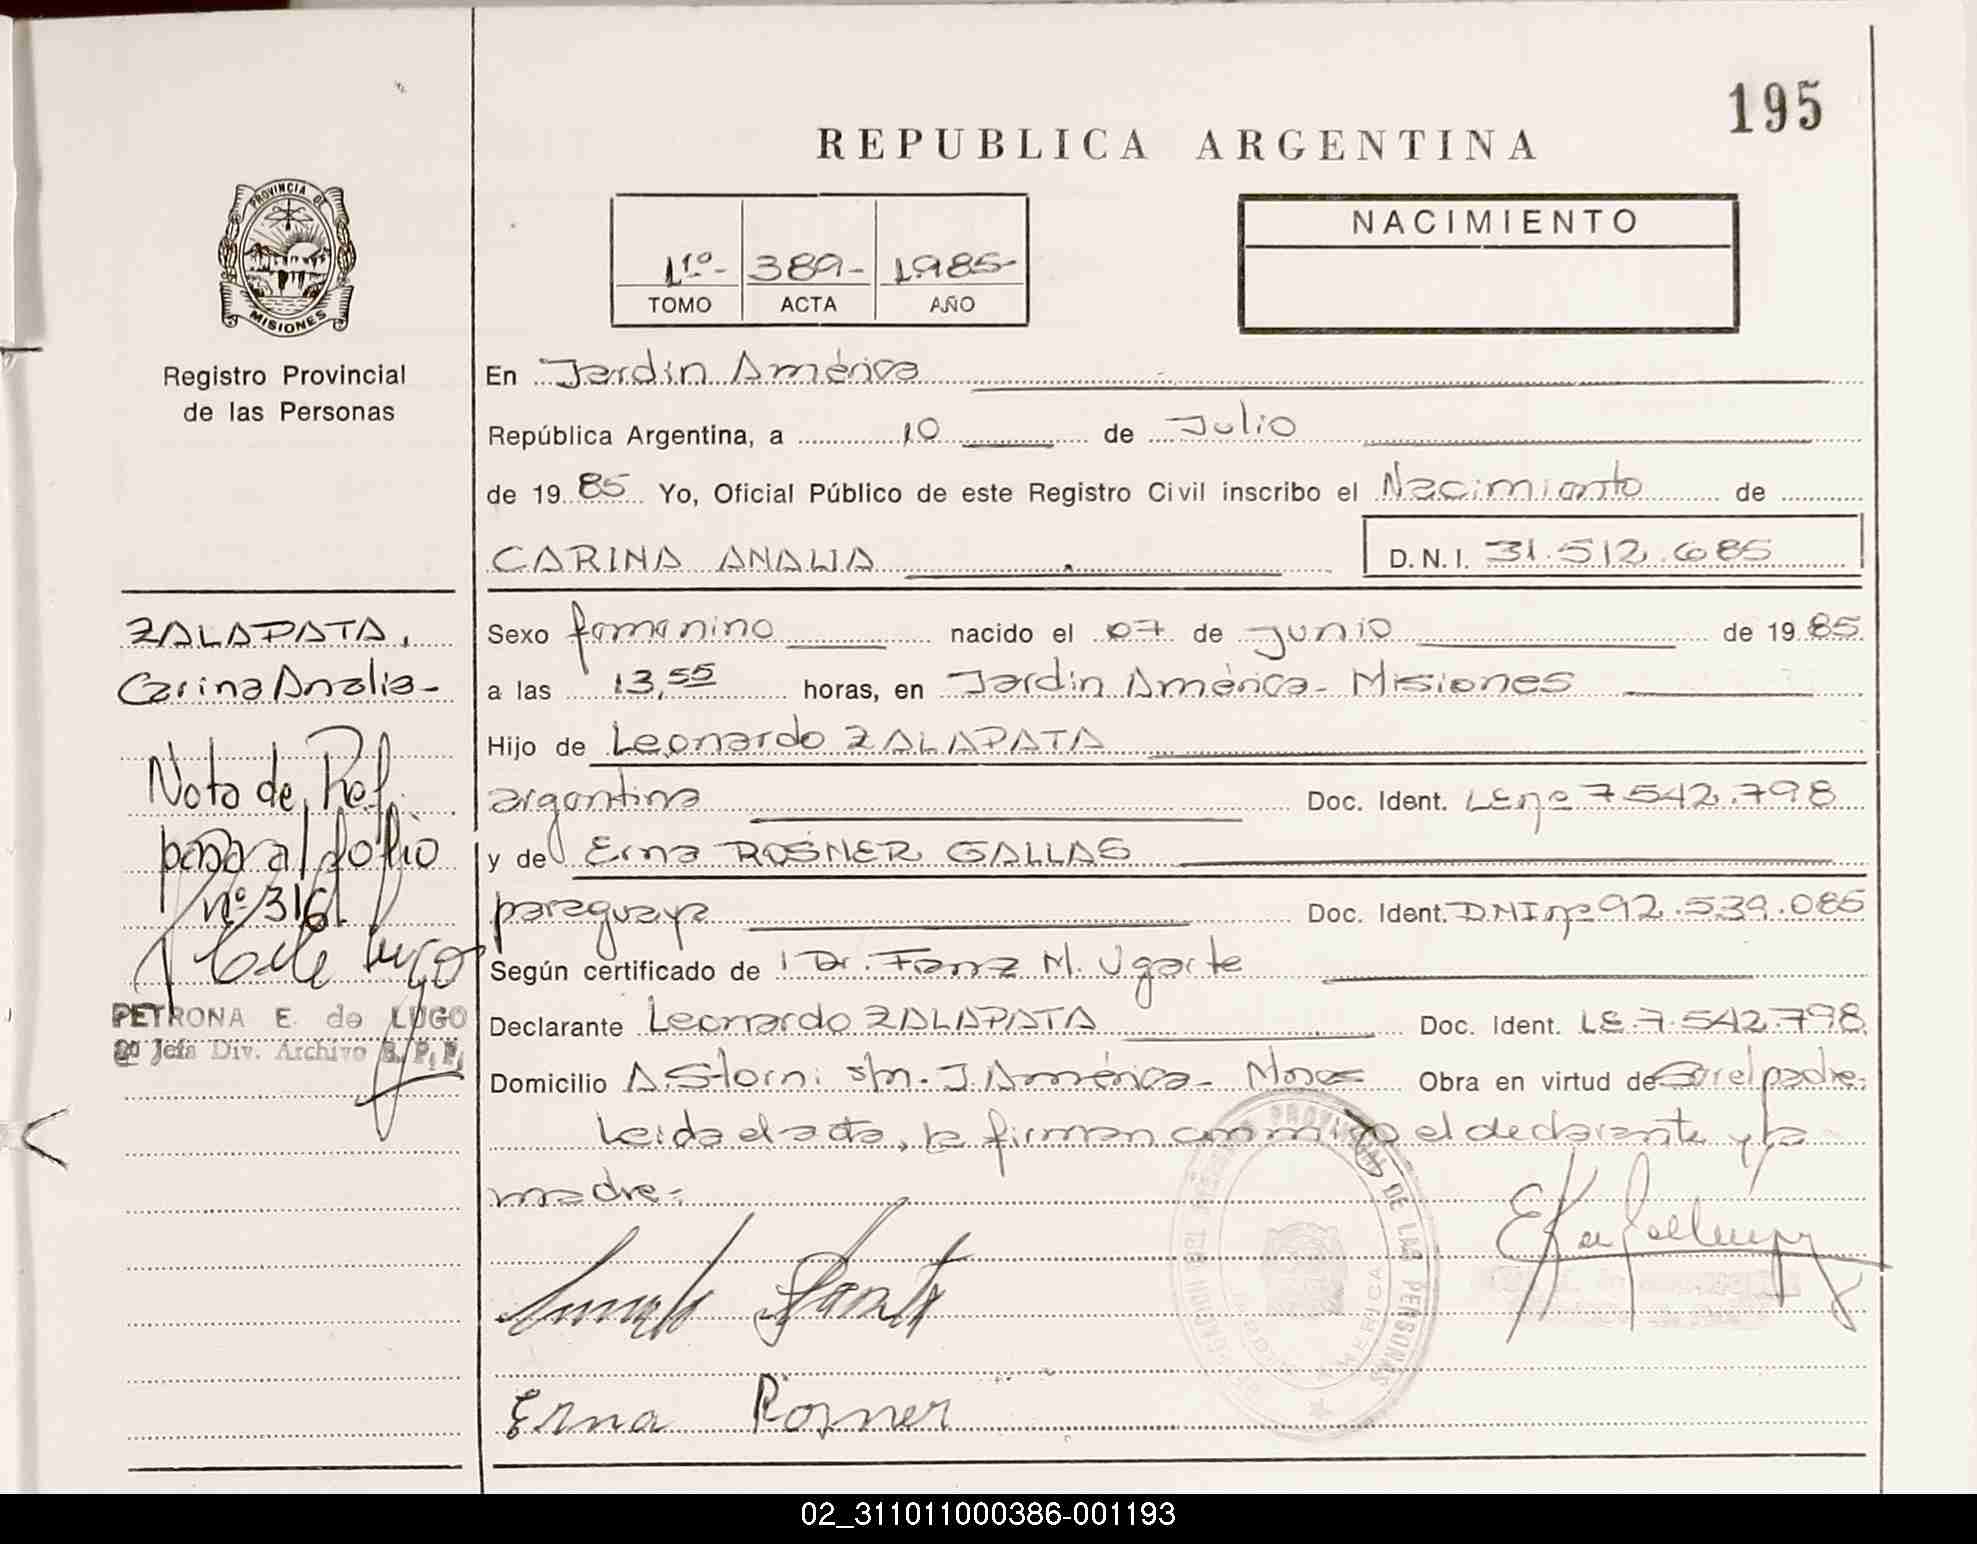 195
REPUBLICA ARGENTINA
PROVINCIA DE
MISIONES
Registro Provincial
de las Personas
1ro- 389- 1985-
TOMO ACTA AÑO
NACIMIENTO
En Jardin América
República Argentina, a 10 de Julio
de 1985 Yo, Oficial Público de este Registro Civil inscribo el Nacimiento de
CARINA ANALIA D.N.I. 31.512.685
ZALAPATA,
Carina Analia-
Nota de Ref.
pasar al folio
nº 316
PETRONA E. de LUGO
2º Jefa Div. Archivo R.P.P.
Sexo femenino nacido el 07 de junio de 1985
a las 13,55 horas, en Jardin América- Misiones
Hijo de Leonardo ZALAPATA
argentina Doc. Ident. LE nº 7.542.798
y de Erna ROSNER GALLAS
paraguaya Doc. Ident. DNI nº 92.539.085
Según certificado de Dr. M. Ugarte
Declarante Leonardo ZALAPATA Doc. Ident. LE.7.542.798
Domicilio A. Storni s/n. J. América- Mnes Obra en virtud de Ser el padre.
Leida el acta, la firman conmigo el declarante y la
madre.
PROVINCIAL DE LAS PERSONAS
AMERICA
Erna Rosner
02_311011000386-001193